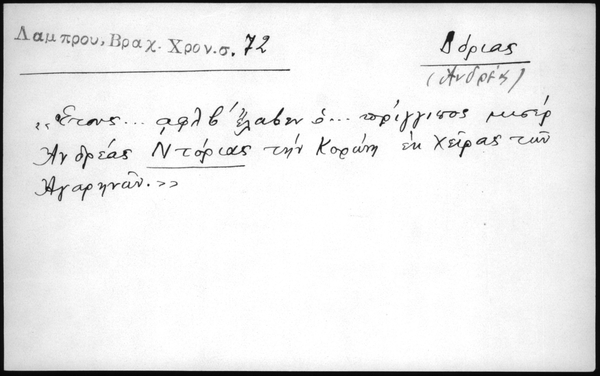 Λαμπρου, Βραχ. Χρον. σ. 72
Δόριας
(Ἀνδρέας)
„Ἔτους... αφλβ' ἔλαβεν ὁ... πρίγγιπος μισέρ
Ἀνδρέας Ντόριας τὴν Κορώνη ἐκ χεῖρας τῶν
Ἀγαρηνῶν.>>